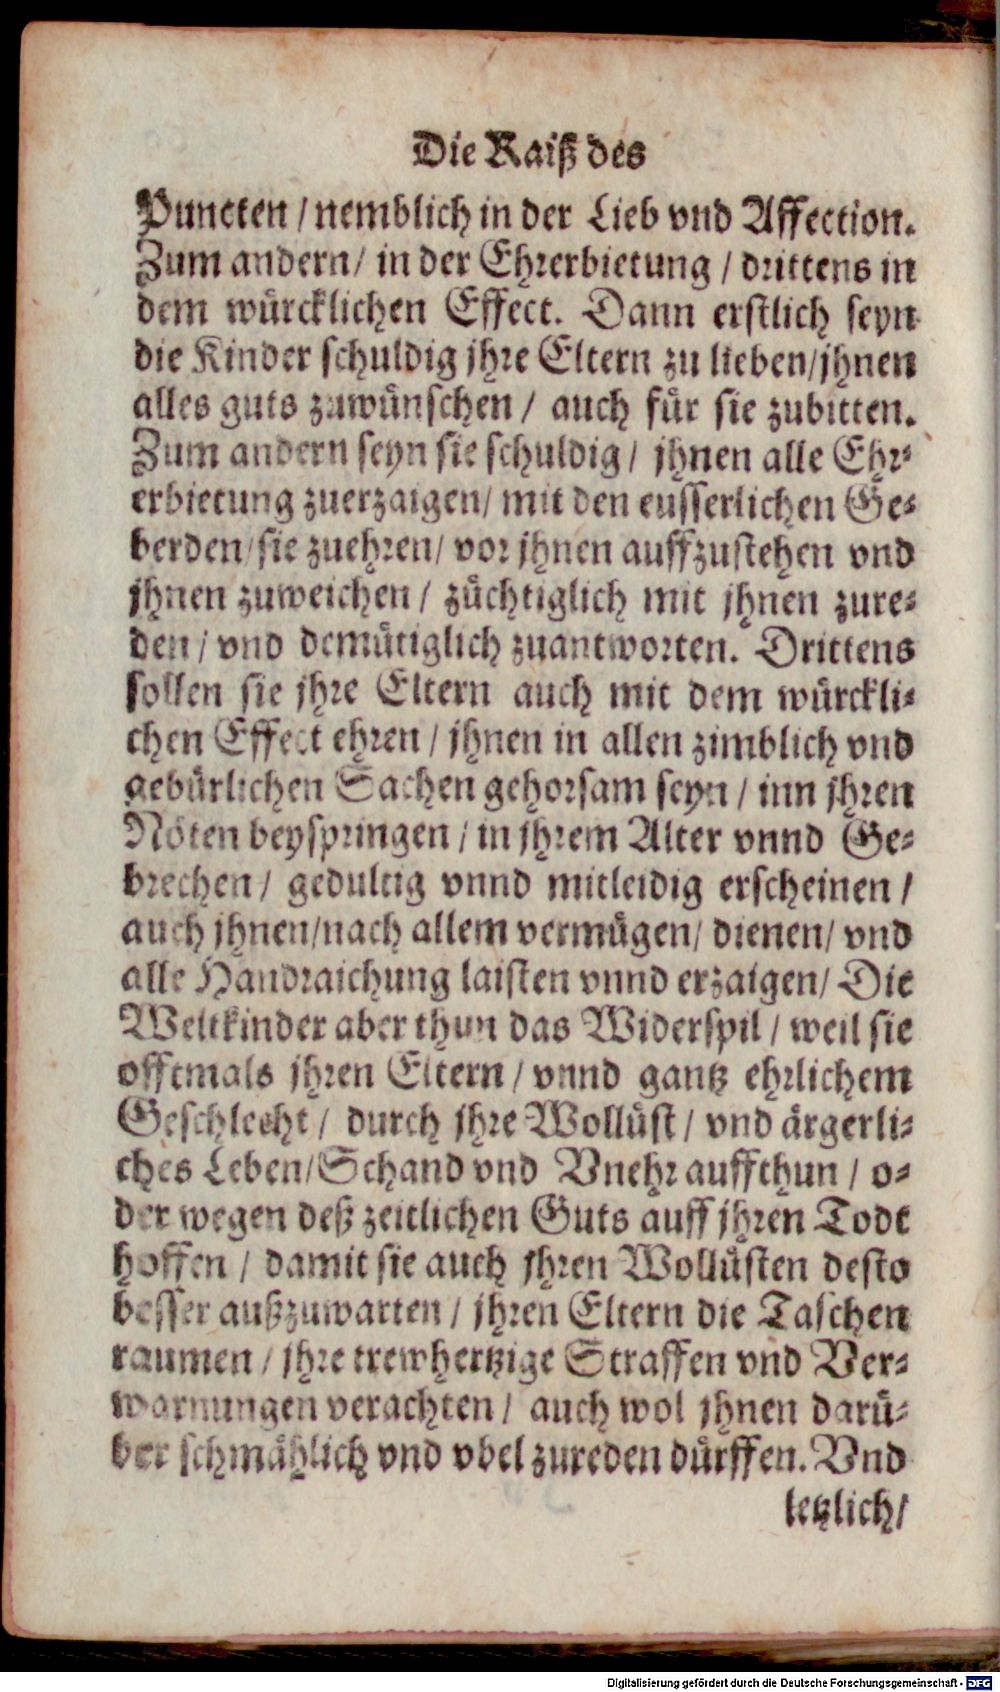 Die Raiß des
Puncten / nemblich in der Lieb vnd Affection.
Zum andern / in der Ehrerbietung / drittens in
dem würcklichen Effect. Dann erstlich seyn
die Kinder schuldig jhre Eltern zu lieben / jhnen
alles guts zuwünschen / auch für sie zubitten.
Zum andern seyn sie schuldig / jhnen alle Ehr-
erbietung zuerzaigen / mit den eusserlichen Ge-
berden / sie zuehren / vor jhnen auffzustehen vnd
jhnen zuweichen / züchtiglich mit jhnen zure-
den / vnd demütiglich zuantworten. Drittens
sollen sie jhre Eltern auch mit dem würckli-
chen Effect ehren / jhnen in allen zimblich vnd
gebürlichen Sachen gehorsam seyn / inn jhren
Nöten beyspringen / in jhrem Alter vnnd Ge-
brechen / gedultig vnnd mitleidig erscheinen /
auch jhnen / nach allem vermügen / dienen / vnd
alle Handraichung laisten vnnd erzaigen / Die
Weltkinder aber thun das Widerspil / weil sie
offtmals jhren Eltern / vnnd gantz ehrlichem
Geschlecht / durch jhre Wollüst / vnd ärgerli-
ches Leben / Schand vnd Vnehr auffthun / o-
der wegen deß zeitlichen Guts auff jhren Todt
hoffen / damit sie auch jhren Wollüsten desto
besser außzuwarten / jhren Eltern die Taschen
raumen / jhre trewhertzige Straffen vnd Ver-
warnungen verachten / auch wol jhnen darü-
ber schmählich vnd vbel zureden dürffen. Vnd
letzlich /
Digitalisierung gefördert durch die Deutsche Forschungsgemeinschaft - DFG